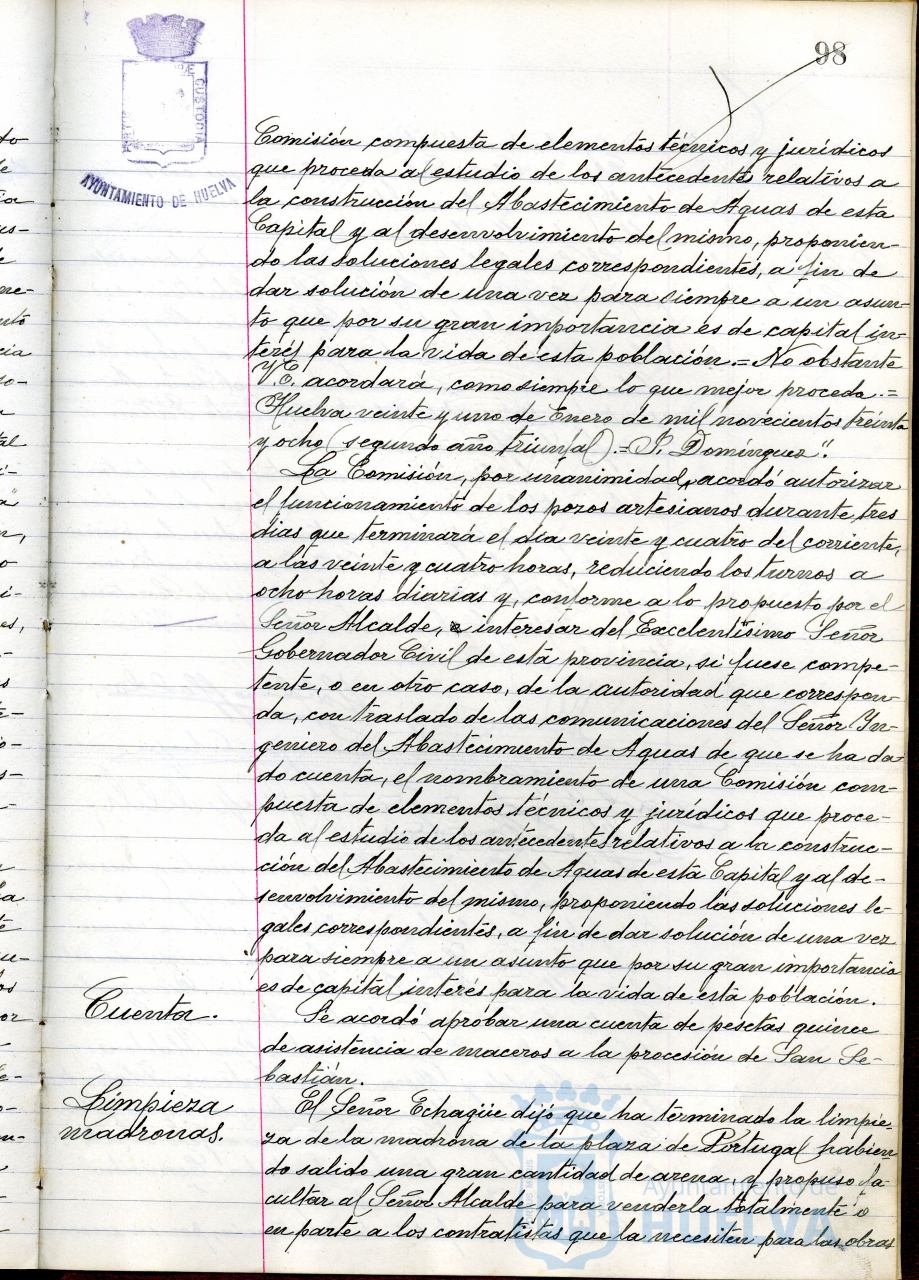 98
CUSTODIA
AYUNTAMIENTO DE HUELVA
Comisión compuesta de elementos técnicos y jurídicos
que proceda al estudio de los antecedentes relativos a
la construcción del Abastecimiento de Aguas de esta
Capital y al desenvolvimiento del mismo, proponien-
do las soluciones legales correspondientes, a fin de
dar solución de una vez para siempre a un asun-
to que por su gran importancia es de capital in-
terés para la vida de esta población.= No obstante
V.E. acordará, como siempre lo que mejor proceda.=
Huelva veinte y uno de Enero de mil novecientos treinta
y ocho (segundo año triunfal).= P. Domínguez".
La Comisión, por unanimidad, acordó autorizar
el funcionamiento de los pozos artesianos durante tres
dias que terminará el día veinte y cuatro del corriente,
a las veinte y cuatro horas, reduciendo los turnos a
ocho horas diarias y, conforme a lo propuesto por el
Señor Alcalde, a interesar del Excelentísimo Señor
Gobernador Civil de esta provincia, si fuese compe-
tente, o en otro caso, de la autoridad que correspon-
da, con traslado de las comunicaciones del Señor In-
geniero del Abastecimiento de Aguas de que se ha da-
do cuenta, el nombramiento de una Comisión com-
puesta de elementos técnicos y jurídicos que proce-
da al estudio de los antecedentes relativos a la construc-
ción del Abastecimiento de Aguas de esta Capital y al de-
senvolvimiento del mismo, proponiendo las soluciones le-
gales correspondientes, a fin de dar solución de una vez
para siempre a un asunto que por su gran importancia
es de capital interés para la vida de esta población.
Cuenta.
Se acordó aprobar una cuenta de pesetas quince
de asistencia de maceros a la procesión de San Se-
bastián.
Limpieza
madronas.
El Señor Echagüe dijo que ha terminado la limpie-
za de la madrona de la plaza de Portugal habien-
do salido una gran cantidad de arena y propuso fa-
cultar al Señor Alcalde para venderla totalmente o
en parte a los contratistas que la necesiten para las obras
Ayuntamiento de
HUELVA